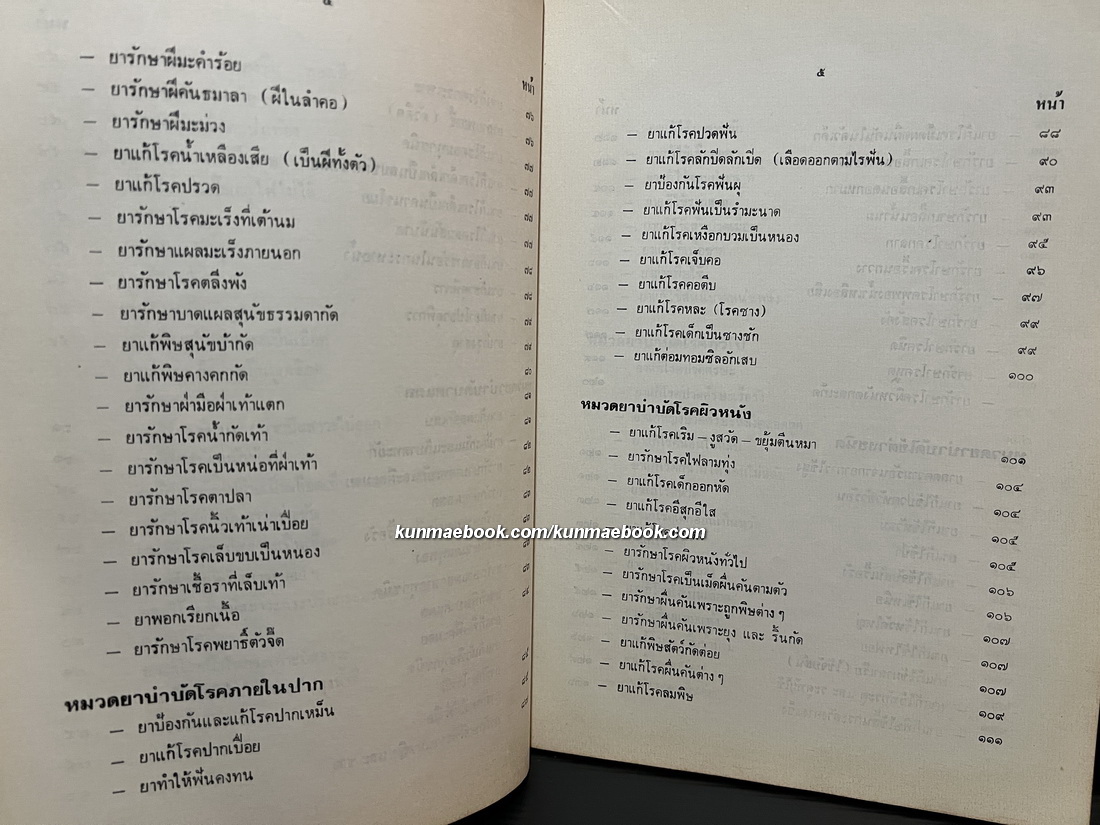 — ยารักษาฝีมะคำร้อย
— ยารักษาฝีคันธมาลา (ฝีในลำคอ)
— ยารักษาฝีมะม่วง
— ยาแก้โรคน้ำเหลืองเสีย (เป็นฝีทั้งตัว)
— ยาแก้โรคปรวด
— ยารักษาโรคมะเร็งที่เต้านม
— ยารักษาแผลมะเร็งภายนอก
— ยารักษาโรคตลึ่งพัง
— ยารักษาบาดแผลสุนัขธรรมดากัด
— ยาแก้พิษสุนัขบ้ากัด
— ยาแก้พิษคางคกกัด
— ยารักษาฝ่ามือฝ่าเท้าแตก
— ยารักษาโรคน้ำกัดเท้า
— ยารักษาโรคเป็นหน่อที่ฝ่าเท้า
— ยารักษาโรคตาปลา
— ยารักษาโรคนิ้วเท้าเน่าเปื่อย
— ยารักษาโรคเล็บขบเป็นหนอง
— ยารักษาเชื้อราที่เล็บเท้า
— ยาพอกเรียกเนื้อ
— ยารักษาโรคพยาธิ์ตัวจี๊ด
หมวดยาบำบัดโรคภายในปาก
— ยาป้องกันและแก้โรคปากเหม็น
— ยาแก้โรคปากเปื่อย
— ยาทำให้ฟันคงทน
หน้า
๗๖
๗๖
๗๗
๗๗
๗๗
๗๗
๗๘
๗๘
๕
หน้า
— ยาแก้โรคปวดฟัน ๘๘
— ยาแก้โรคลักปิดลักเปิด (เลือดออกตามไรฟัน) ๙๐
— ยาป้องกันโรคฟันผุ ๙๓
— ยาแก้โรคฟันเป็นรำมะนาด ๙๓
— ยาแก้โรคเหงือกบวมเป็นหนอง ๙๕
— ยาแก้โรคเจ็บคอ ๙๖
— ยาแก้โรคคอตีบ ๙๗
— ยาแก้โรคหละ (โรคซาง) ๙๙
— ยาแก้โรคเด็กเป็นซางชัก ๙๙
— ยาแก้ต่อมทอมซิลอักเสบ ๑๐๐
หมวดยาบำบัดโรคผิวหนัง
— ยาแก้โรคเริม – งูสวัด – ขยุ้มตีนหมา ๑๐๑
— ยารักษาโรคไฟลามทุ่ง ๑๐๔
— ยาแก้โรคเด็กออกหัด ๑๐๔
— ยาแก้โรคอีสุกอีใส ๑๐๕
๑๐๕
— ยารักษาโรคผิวหนังทั่วไป ๑๐๖
— ยารักษาโรคเป็นเม็ดผื่นคันตามตัว ๑๐๖
— ยารักษาผื่นคันเพราะถูกพิษต่าง ๆ ๑๐๗
— ยารักษาผื่นคันเพราะยุง และ ริ้นกัด ๑๐๗
— ยาแก้พิษสัตว์กัดต่อย ๑๐๗
— ยาแก้โรคผื่นคันต่าง ๆ ๑๐๙
— ยาแก้โรคลมพิษ ๑๑๑
kunmaebook.com/kunmaebook.com